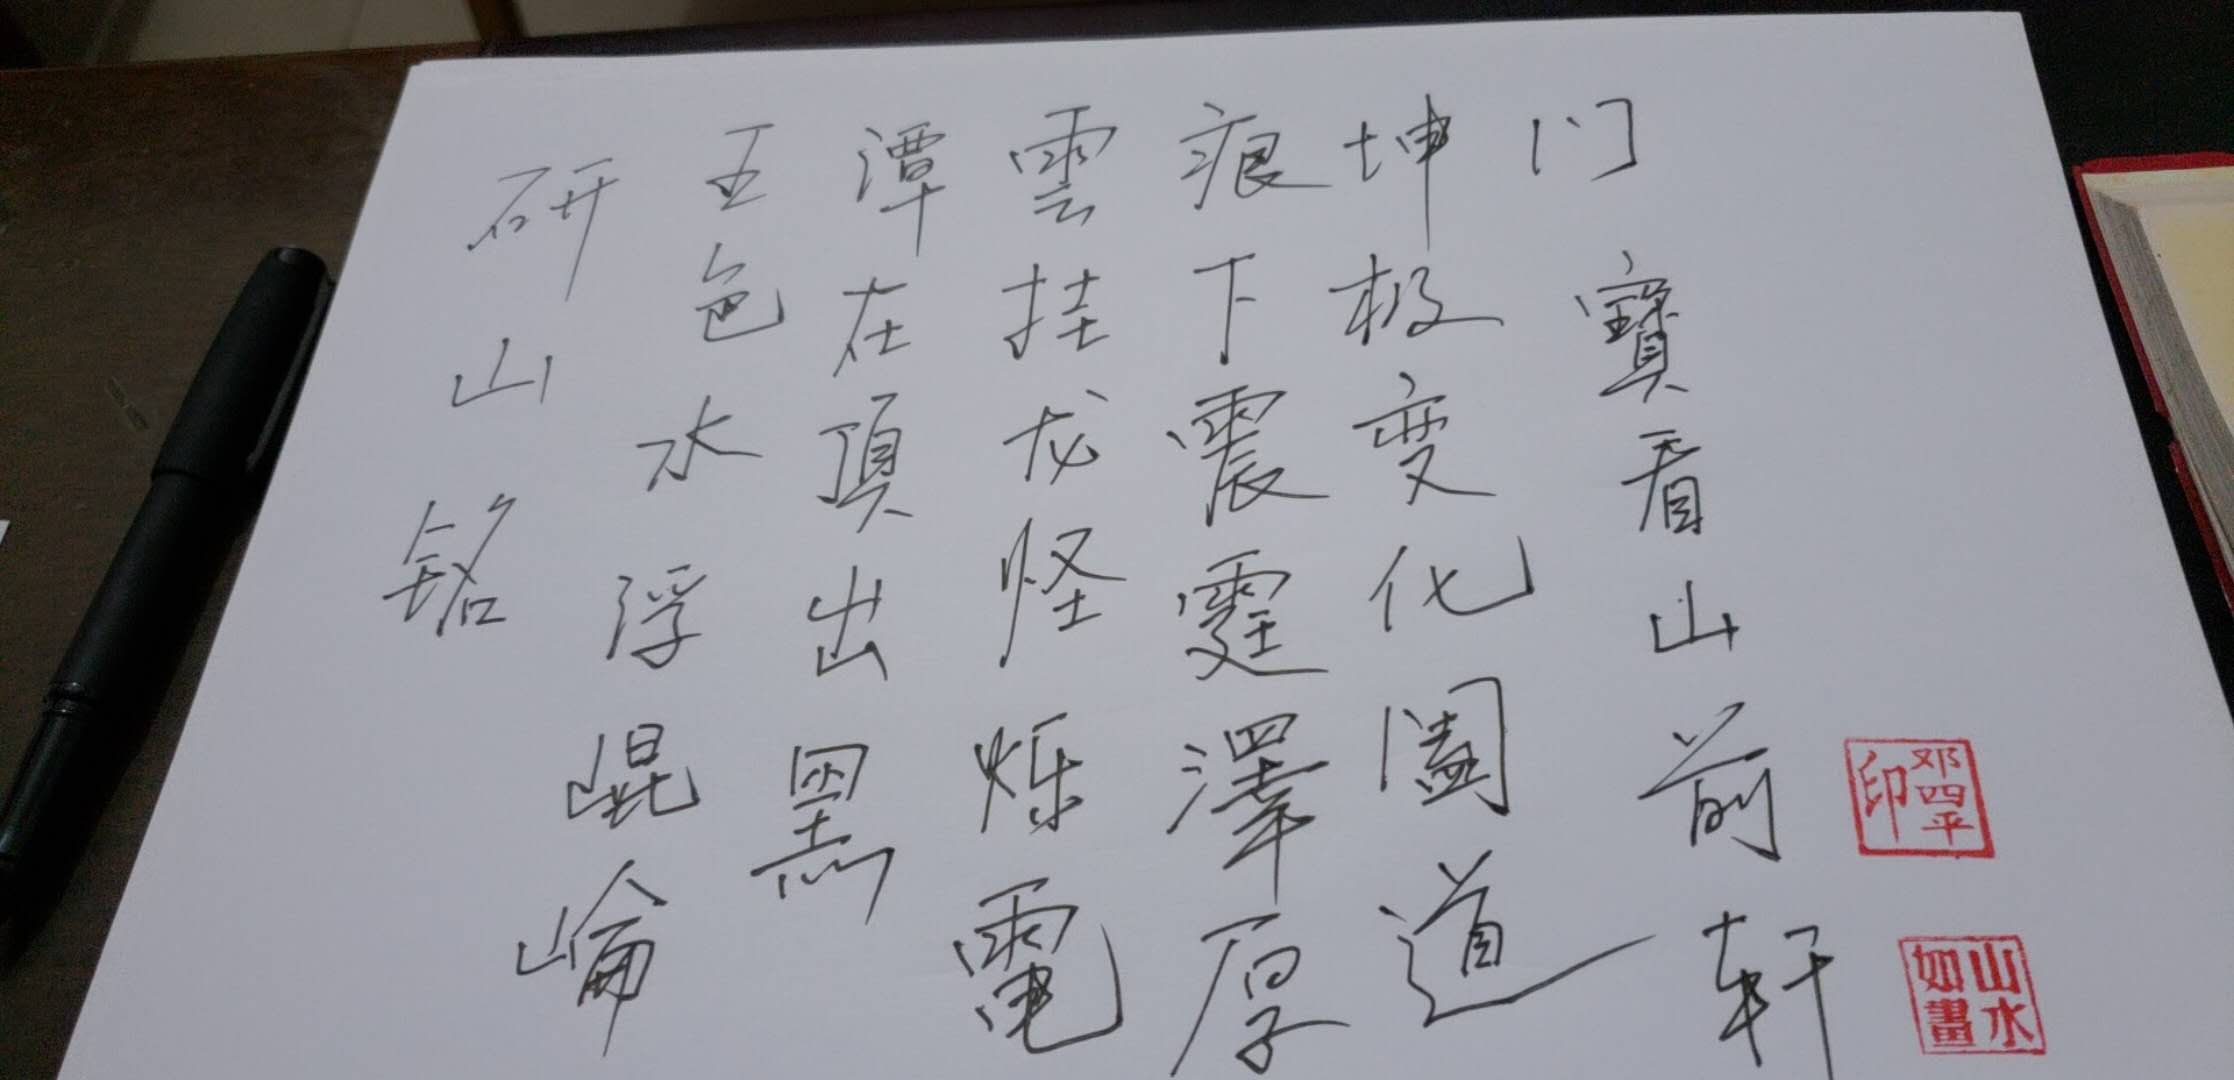 研山铭
五色水浮崐崘
潭在頂出黑
雲挂龙怪烁電
痕下震霆澤厚
坤极变化阖道
门寶看山前轩
邓四平印
山水如畫